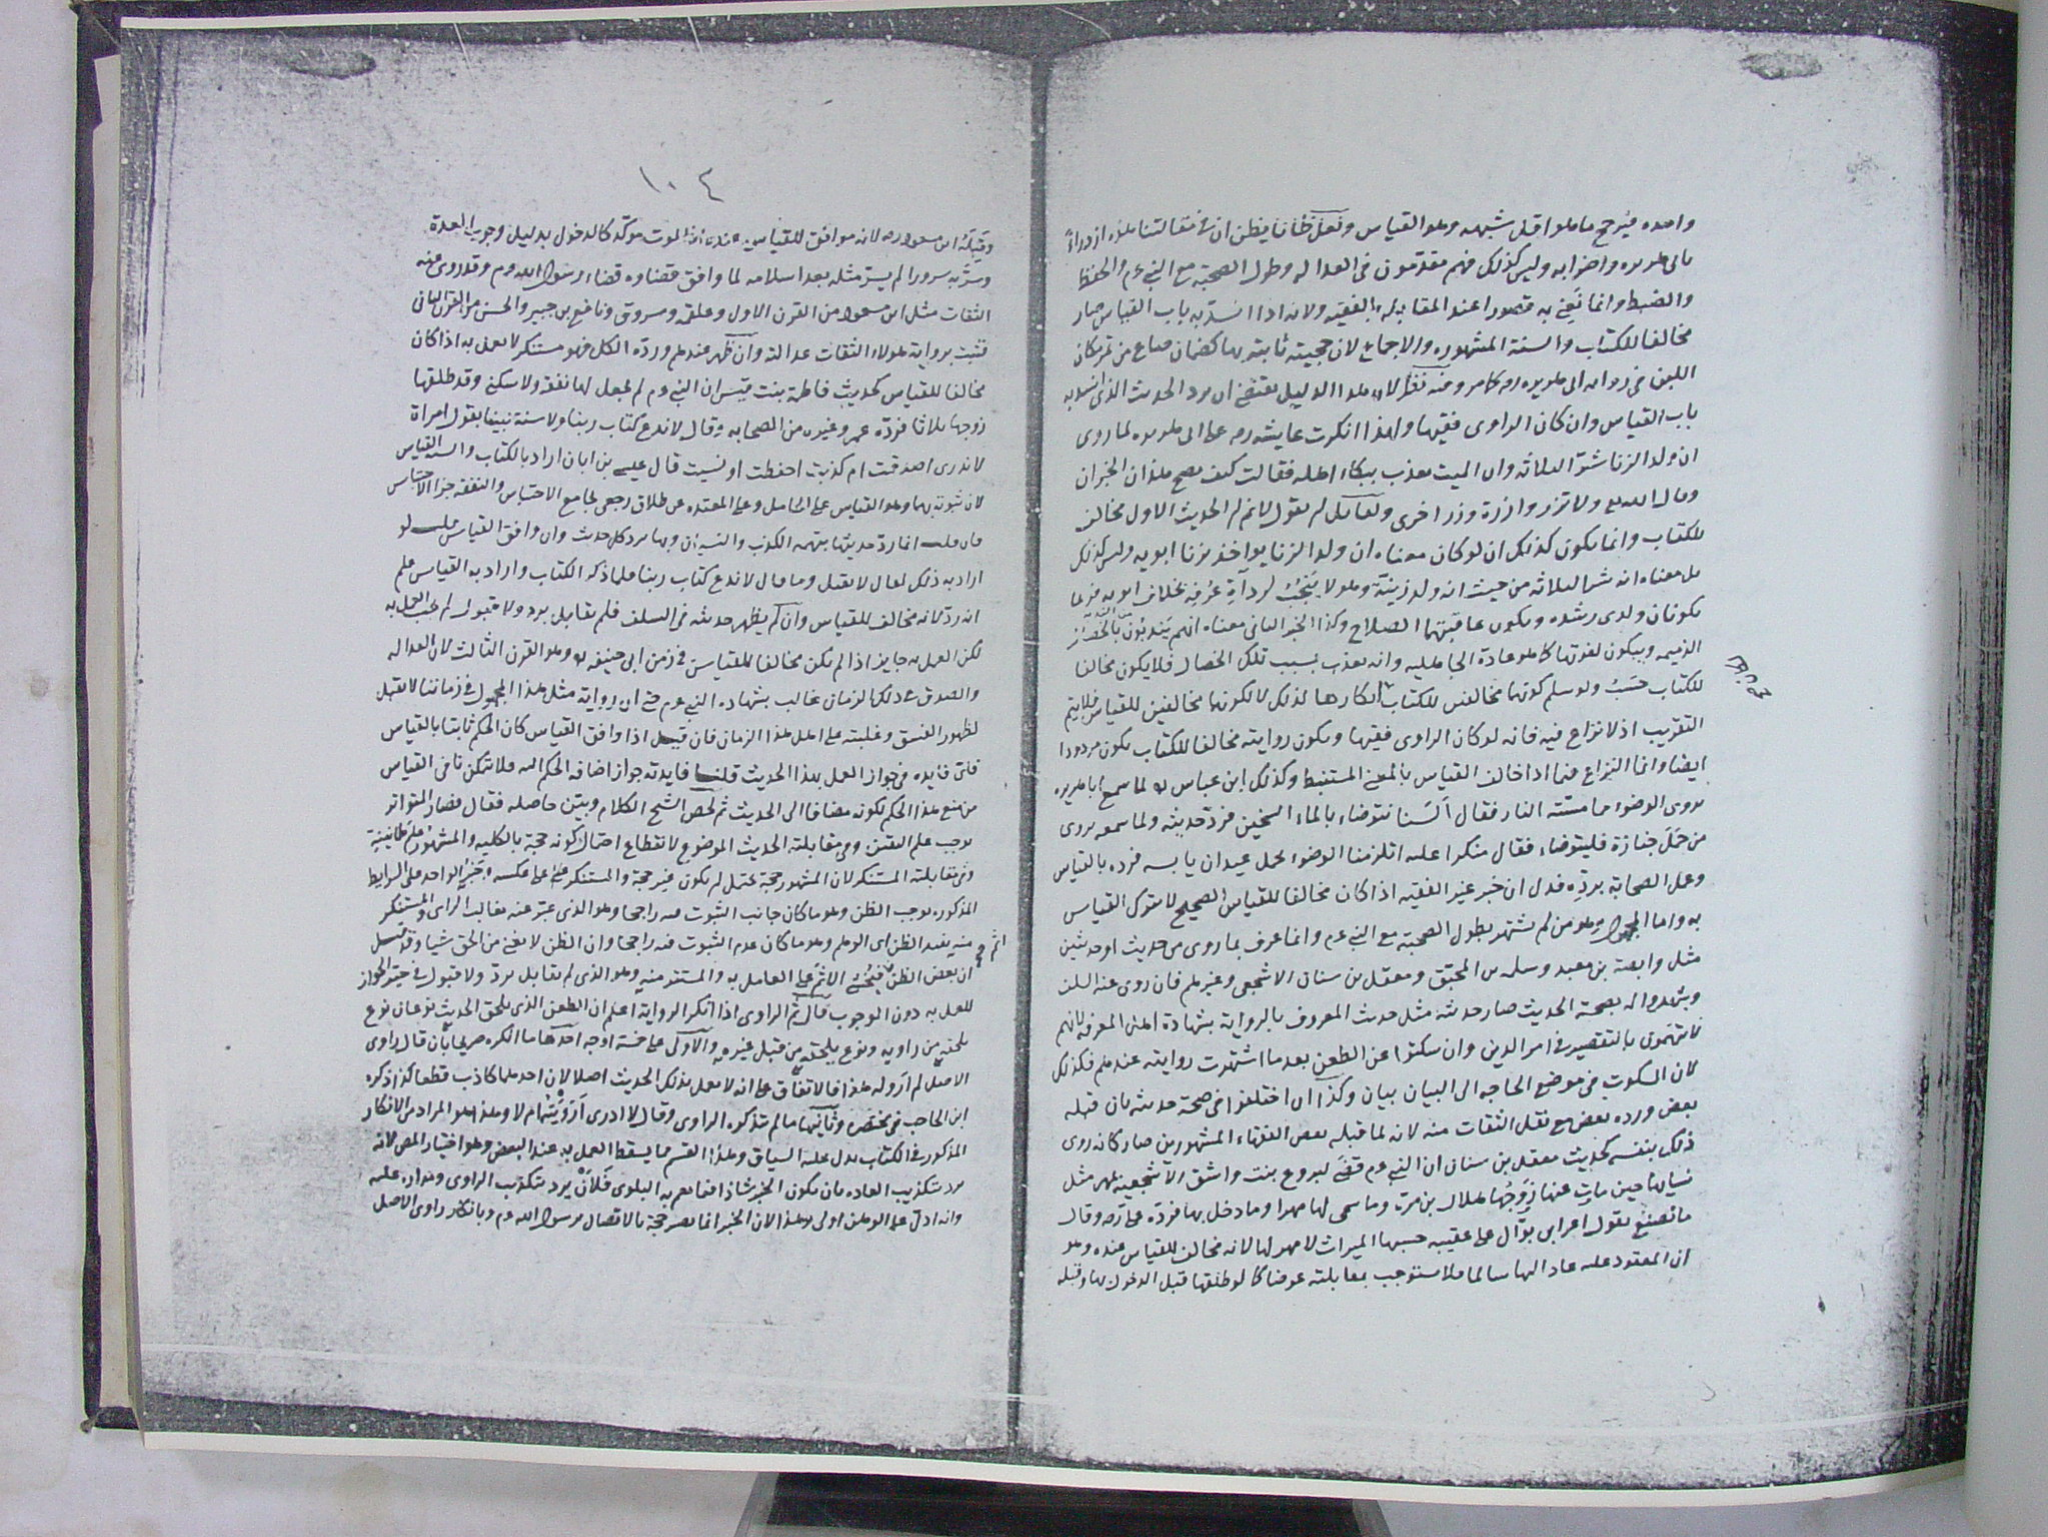 واحده فيرجح ما هو اقل شبهه وهو القياس ولعل ظانا يظن ان في مقالتنا هذه ازدراء
بابي هريره واضرابه وليس كذلك فهم مقدمون في العداله وطول الصحبة مع النبي عم والحفظ
والضبط وانما نعني به قصورا عند المقابله بالفقيه ولانه اذا انسد به باب القياس صار
مخالفا للكتاب والسنة المشهوره والاجماع لان حجيته ثابته بها كضمان صاع من تمر مكان
اللبن في روايه ابي هريره رضه كما مر وفيه نظر لان هذا الدليل يقتضي ان يرد الحديث الذي انسد به
باب القياس وان كان الراوي فقيها ولهذا انكرت عايشه رضه على ابي هريره لما روى
ان ولد الزنا شر الثلاثه وان الميت يعذب ببكاء اهله فقالت كيف يصح هذان الخبران
وقال الله تع ولا تزر وازرة وزر اخرى ولقايل ان يقول لا نم ان الحديث الاول مخالف
للكتاب وانما يكون كذلك ان لو كان معناه ان ولد الزنا يواخذ بزنا ابويه وليس كذلك
بل معناه انه شر الثلاثه من حيث انه ولد زينة وهو لا ينجب لرداءة عرقه بخلاف ابويه فربما
يكونان ولدي رشده ويكون عاقبتهما الصلاح وكذا الخبر الثاني معناه انهم يندبون الميت بالخصال
الذميمه ويبكون لفوتها كما هو عادة الجاهليه وانه يعذب بسبب تلك الخصال فلا يكون مخالفا
للكتاب حسب ولو سلم كونهما مخالفين للكتاب انكارها لذلك لا لكونهما مخالفين للقياس فلا يتم
التقريب اذ لا نزاع فيه فانه لو كان الراوي فقيها ويكون روايته مخالفا للكتاب يكون مردودا
ايضا وانما النزاع فيما اذا خالف القياس بالمعنى المستنبط وكذلك ابن عباس لما سمع ابا هريره
يروي الوضوء مما مسته النار فقال السنا نتوضاء بالماء السخين فرد حديثه ولما سمعه يروي
من حمل جنازة فليتوضاء فقال منكرا عليه اتلزمنا الوضوء بحمل عيدان يابسه فرده بالقياس
وعمل الصحابة برده فدل ان خبر غير الفقيه اذا كان مخالفا للقياس الصحيح لا يترك القياس
به واما المجهول وهو من لم يشتهر بطول الصحبة مع النبي عم وانما عرف بما روى من حديث او حديثين
مثل وابصة بن معبد وسلمه بن المحبق ومعقل بن سنان الاشجعي وغيرهم فان روى عنه السلف
وشهدوا له بصحة الحديث صار حديثه مثل حديث المعروف بالرواية بشهادة اهل المعرفه لانهم
لا يتهمون بالتقصير في امر الدين وان سكتوا عن الطعن بعد ما اشتهرت روايته عندهم فكذلك
لان السكوت في موضع الحاجه الى البيان بيان وكذا ان اختلفوا في صحة حديثه بان قبله
بعض ورده بعض مع نقل الثقات منه لانه لما قبله بعض الفقهاء المشهورين صار كانه روى
ذلك بنفسه كحديث معقل بن سنان ان النبي عم قضى لبروع بنت واشق الاشجعيه بمهر مثل
نسايها حين مات عنها زوجها هلال بن مرة وما سمى لها مهرا وما دخل بها فرده علي رضه وقال
ما نصنع بقول اعرابي بوال على عقيبه حسبها الميراث لا مهر لها لانه مخالف للقياس عنده وهو
ان المعقود عليه عاد اليها سالما فلا تستوجب بمقابلته عوضا كما لو طلقها قبل الدخول بها وقبله
١٠٤
وقبله ابن مسعود رضه لانه موافق للقياس عنده اذ الموت مؤكد كالدخول بدليل وجوب العدة
وسر به سرورا لم يسر مثله بعد اسلامه لما وافق قضاوه قضاء رسول الله عم وقد روى عنه
الثقات مثل ابن مسعود من القرن الاول وعلقمه ومسروق ونافع بن جبير والحسن من القرن الثاني
فثبت برواية هولاء الثقات عدالته وان ظهر عندهم ورده الكل فهو مستنكر لا يعمل به اذا كان
مخالفا للقياس كحديث فاطمة بنت قيس ان النبي عم لم يجعل لها نفقة ولا سكنى وقد طلقها
زوجها ثلاثا فرده عمر وغيره من الصحابه وقال لا ندع كتاب ربنا ولا سنة نبينا بقول امراة
لا ندري اصدقت ام كذبت احفظت او نسيت قال عيسى بن ابان اراد بالكتاب والسنه القياس
لان ثبوته بهما وهو القياس على الحامل وعلى المعتده عن طلاق رجعي بجامع الاحتباس والنفقه جزاء الاحتباس
فان قلت انما رد حديثها بتهمه الكذب والنسيان وبهما يرد كل حديث وان وافق القياس قلت لو
اراد به ذلك لقال لا يقبل وما قال لا ندع كتاب ربنا فلما ذكر الكتاب واراد به القياس علم
انه رد لانه مخالف للقياس وان لم يظهر حديثه في السلف فلم يقابل برد ولا قبول لم يجب العمل به
لكن العمل به جايز اذا لم يكن مخالفا للقياس في زمن ابي حنيفه وهو القرن الثالث لان العداله
والصدق في ذلك الزمان غالب بشهاده النبي عم حتى ان رواية مثل هذا المجهول في زماننا لا تقبل
لظهور الفسق وغلبته على اهل هذا الزمان فان قيل اذا وافق القياس كان الحكم ثابتا بالقياس
فاي فايده في جواز العمل بهذا الحديث قلنا فايدته جواز اضافه الحكم اليه فلا يتمكن نافي القياس
من منع هذا الحكم لكونه مضافا الى الحديث ثم لخص الشيخ الكلام وبين حاصله فقال فصار المتواتر
يوجب علم اليقين وفي مقابلته الحديث الموضوع لانقطاع احتمال كونه حجة بالكليه والمشهور علم طمانينة
وفي مقابلته المستنكر لان المشهور حجة يحتمل ان يكون غير حجة والمستنكر على عكسه وخبر الواحد على الشرايط
المذكوره يوجب الظن وهو ما كان جانب الثبوت فيه راجحا وهو الذي عبر عنه بغالب الراي والمستنكر
منه يفيد الظن اي الوهم وهو ما كان عدم الثبوت فيه راجحا وان الظن لا يغني من الحق شيا وقد قيل
ان بعض الظن اثم فيخشى الاثم على العامل به والمستتر منه وهو الذي لم يقابل برد ولا قبول في حيز الجواز
للعمل به دون الوجوب قال ثم الراوي اذا انكر الرواية اعلم ان الطعن الذي يلحق الحديث نوعان نوع
يلحقه من راويه ونوع يلحقه من قبل غيره والاول على خمسة اوجه احدها ما انكره صريحا بان قال راوي
الاصل لم ارو له هذا فالاتفاق على انه لا يعمل بذلك الحديث اصلا لان احدهما كاذب قطعا كذا ذكره
ابن الحاجب في مختصره وثانيها ما لم يتذكره الراوي وقال لا ادري ارويتها ام لا وهذا هو المراد من الانكار
المذكور في الكتاب يدل عليه السياق وهذا القسم مما يسقط العمل به عند البعض وهو اختيار المص لانه
يرد بتكذيب العاده بان يكون الخبر شاذا فيما يعم به البلوى فلان يرد بتكذيب الراوي ومداره عليه
وانه ادل على الوهن اولى وهذا لان الخبر انما يصير حجة بالاتصال برسول الله عم وبانكار راوي الاصل